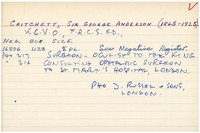 CRITCHETT, SIR GEORGE ANDERSON (1845-1925)
K.C.V.O. F.R.C.S. Ed.
NEG. BOX SIZE
1/2 pl. See Negative Register.
SURGEON OCULIST TO THE KING
CONSULTING OPHTHALMIC SURGEON
TO ST. MARY'S HOSPITAL, LONDON.
Photo J. RUSSELL & SONS,
LONDON.